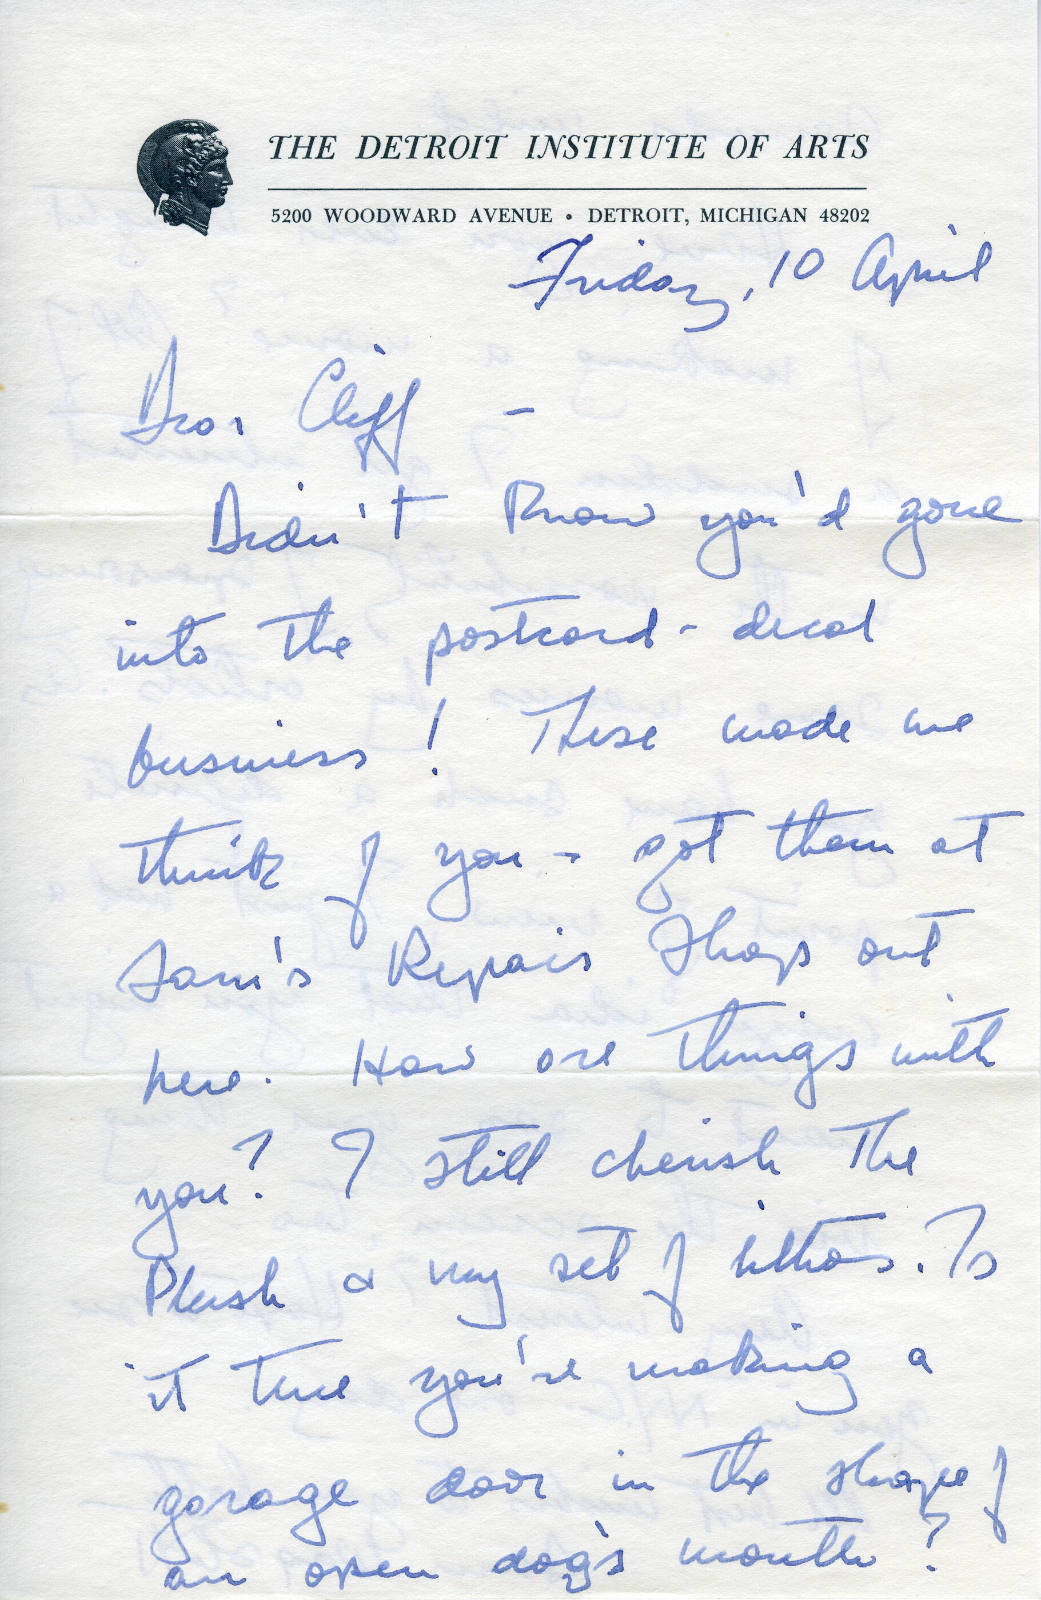 THE DETROIT INSTITUTE OF ARTS
5200 WOODWARD AVENUE • DETROIT, MICHIGAN 48202
Friday, 10 April
Dear Cliff —
Didn't know you'd gone
into the postcard - decal
business! These made me
think of you - got them at
Sam's Repair Shop out
here. How are things with
you? I still cherish the
Plush & my set of lithos. Is
it true you're making a
garage door in the shape of
an open dog's mouth?